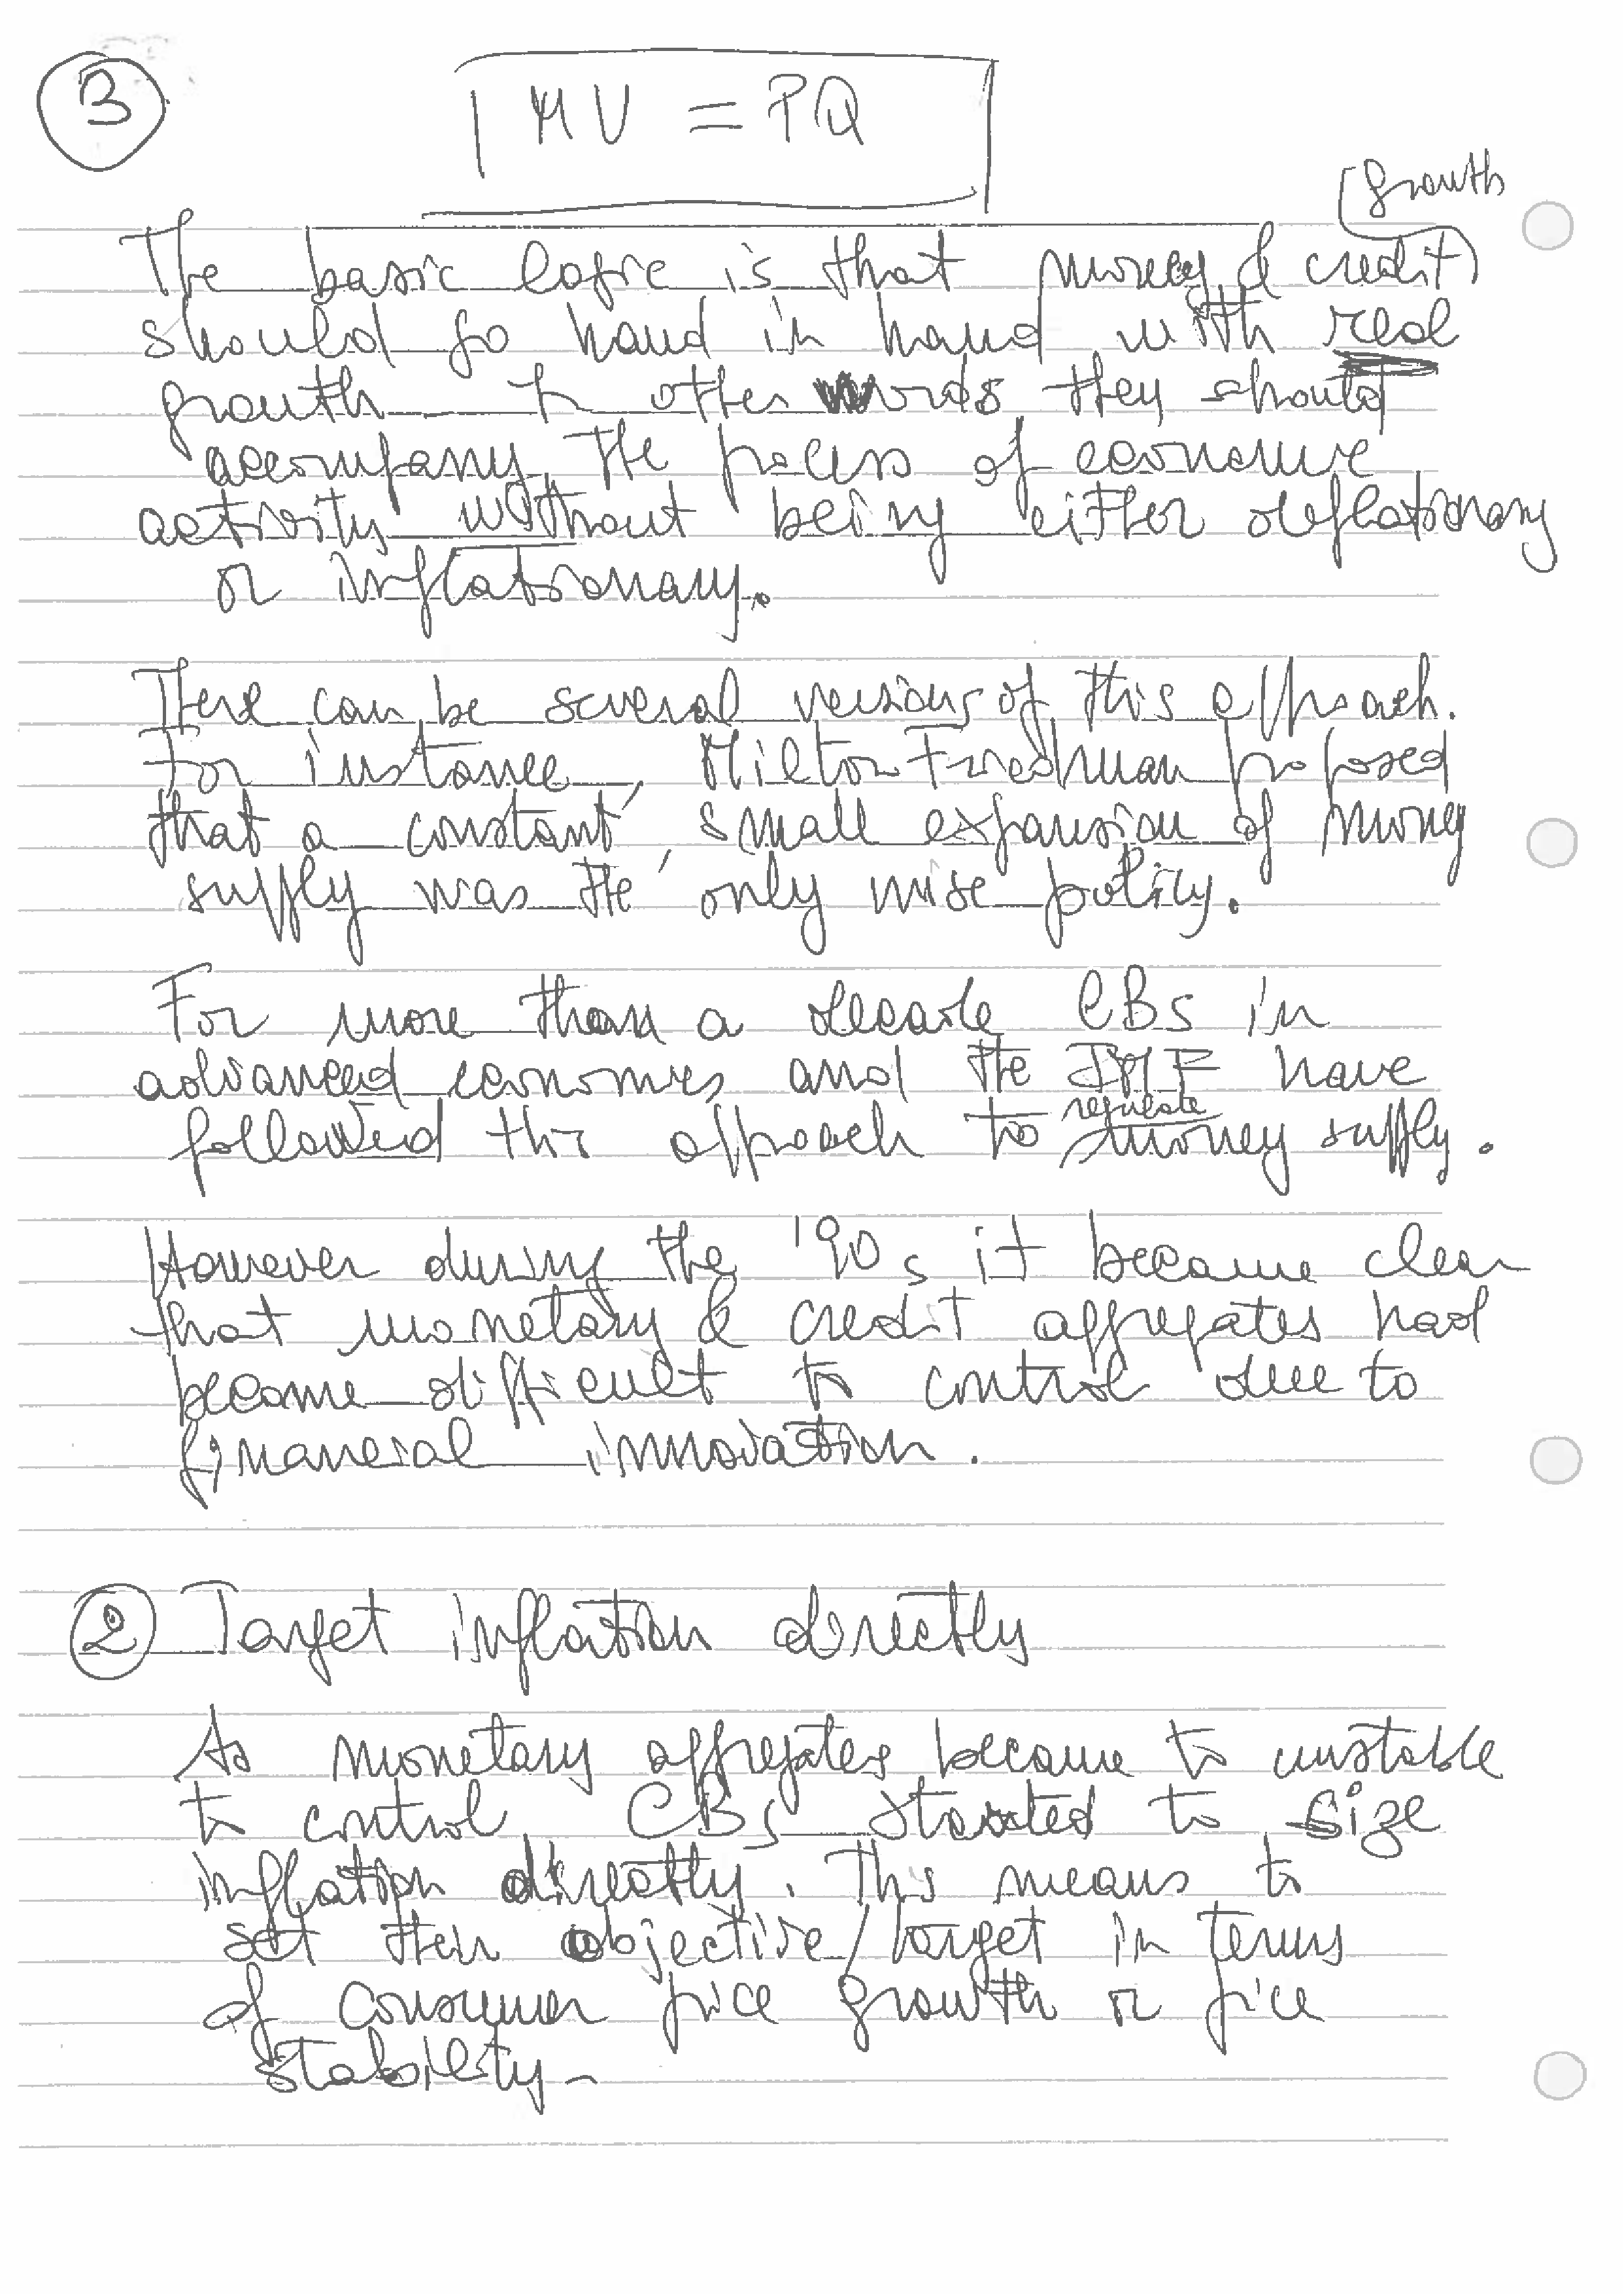 3
MV = PQ
growth
The basic logic is that money & credit
should go hand in hand with real
growth. In other words they should
accompany the process of economic
activity without being either deflationary
or inflationary.
There can be several versions of this approach.
For instance, Milton Friedman proposed
that a constant, small expansion of money
supply was the only wise policy.
For more than a decade CBs in
advanced economies and the IMF have
followed this approach to regulate money supply.
However during the '90s it became clear
that monetary & credit aggregates had
become difficult to control due to
financial innovation.
2 Target inflation directly
As monetary aggregates became to unstable
to control, CBs started to size
inflation directly. This means to
set their objective/target in terms
of consumer price growth or price
stability.